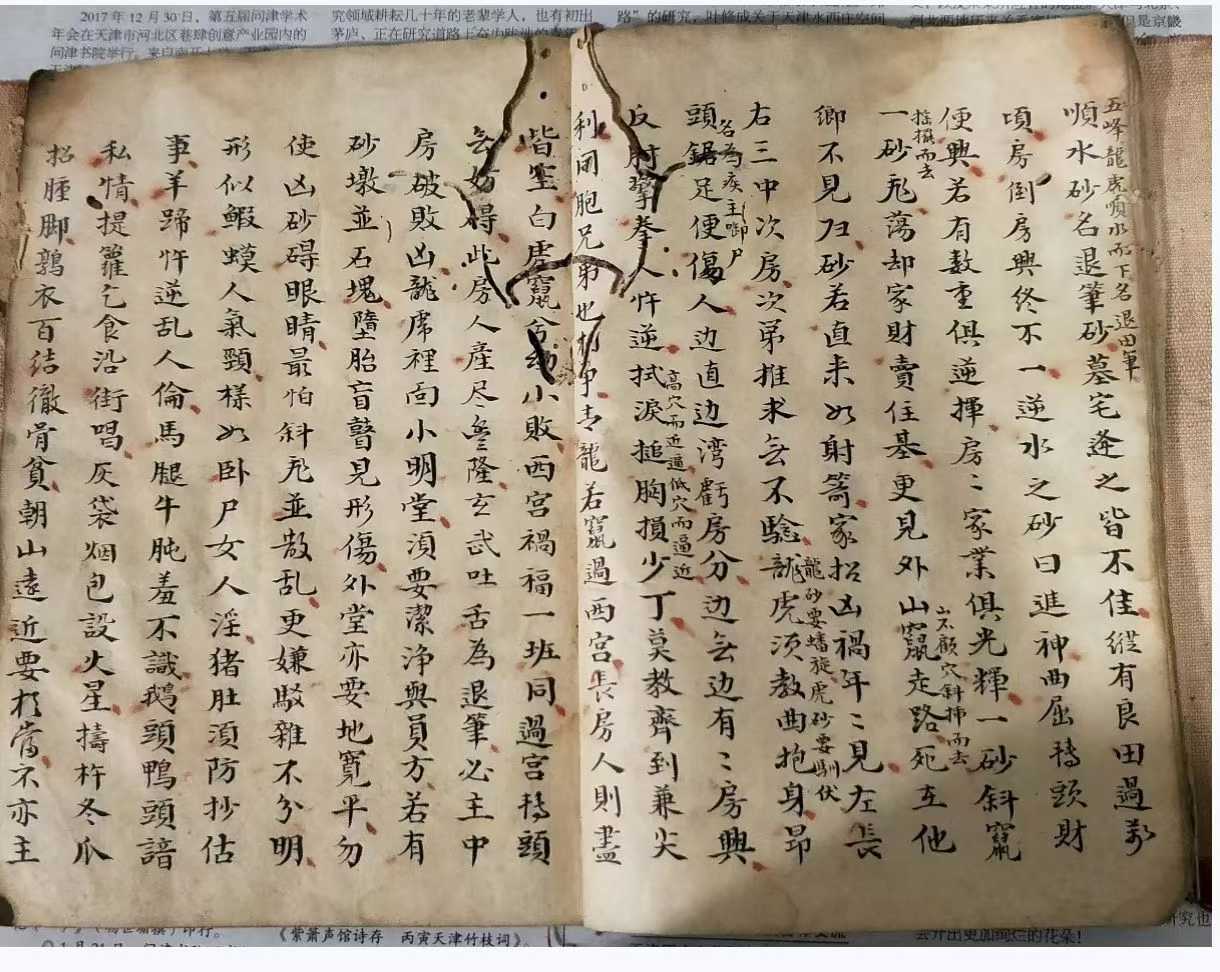 五峰龍虎順水而下名退田筆
順水砂名退筆砂墓宅逢之皆不佳縱有良田過萬
頃房倒房興終不一逆水之砂曰進神曲屈轉頭財
便興若有数重俱逆揮房〻家業俱光輝一砂斜竄
而去
一砂飛蕩却家財賣住基更見外山竄走路死在他
山不顧穴斜掃而去
鄉不見歸砂若直来如射箭家招凶禍年〻見左長
龍砂要蟠旋虎砂要馴伏
右三中次房次第推求無不驗龍虎須教曲抱身昂
名為疾主啣尸
頭鋸足便傷人边直边湾虧房分边無边有〻房興
高穴而近逼低穴而逼近
反肘挙拳人忤逆拭淚搥胸損少丁莫教齊到兼尖
利同胞兄弟也
龍若竄過西宮長房人則盡
皆空白虎竄
小敗西宮禍福一班同過宮轉頭
無妨得此房人產尽豊隆玄武吐舌為退筆必主中
房破敗凶龍虎裡面小明堂須要潔浄與員方若有
砂墩並石塊墮胎盲瞽見形傷外堂亦要地寬平勿
使凶砂碍眼睛最怕斜飛並散乱更嫌駁雜不分明
形似蝦蟆人氣頸樣如卧尸女人淫猪肚須防抄估
事羊蹄忤逆乱人倫馬腿牛肫羞不識鵝頭鴨頭諳
私情提籮乞食沿街唱灰袋烟包設火星擣杵冬瓜
招腫脚鶉衣百结徹骨貧朝山遠近要相當不亦主
2017年12月30日，第五届问津学术
年会在天津市河北区巷肆创意产业园内的
究领域耕耘几十年的老辈学人，也有初出
《紫箫声馆诗存　丙寅天津竹枝词》